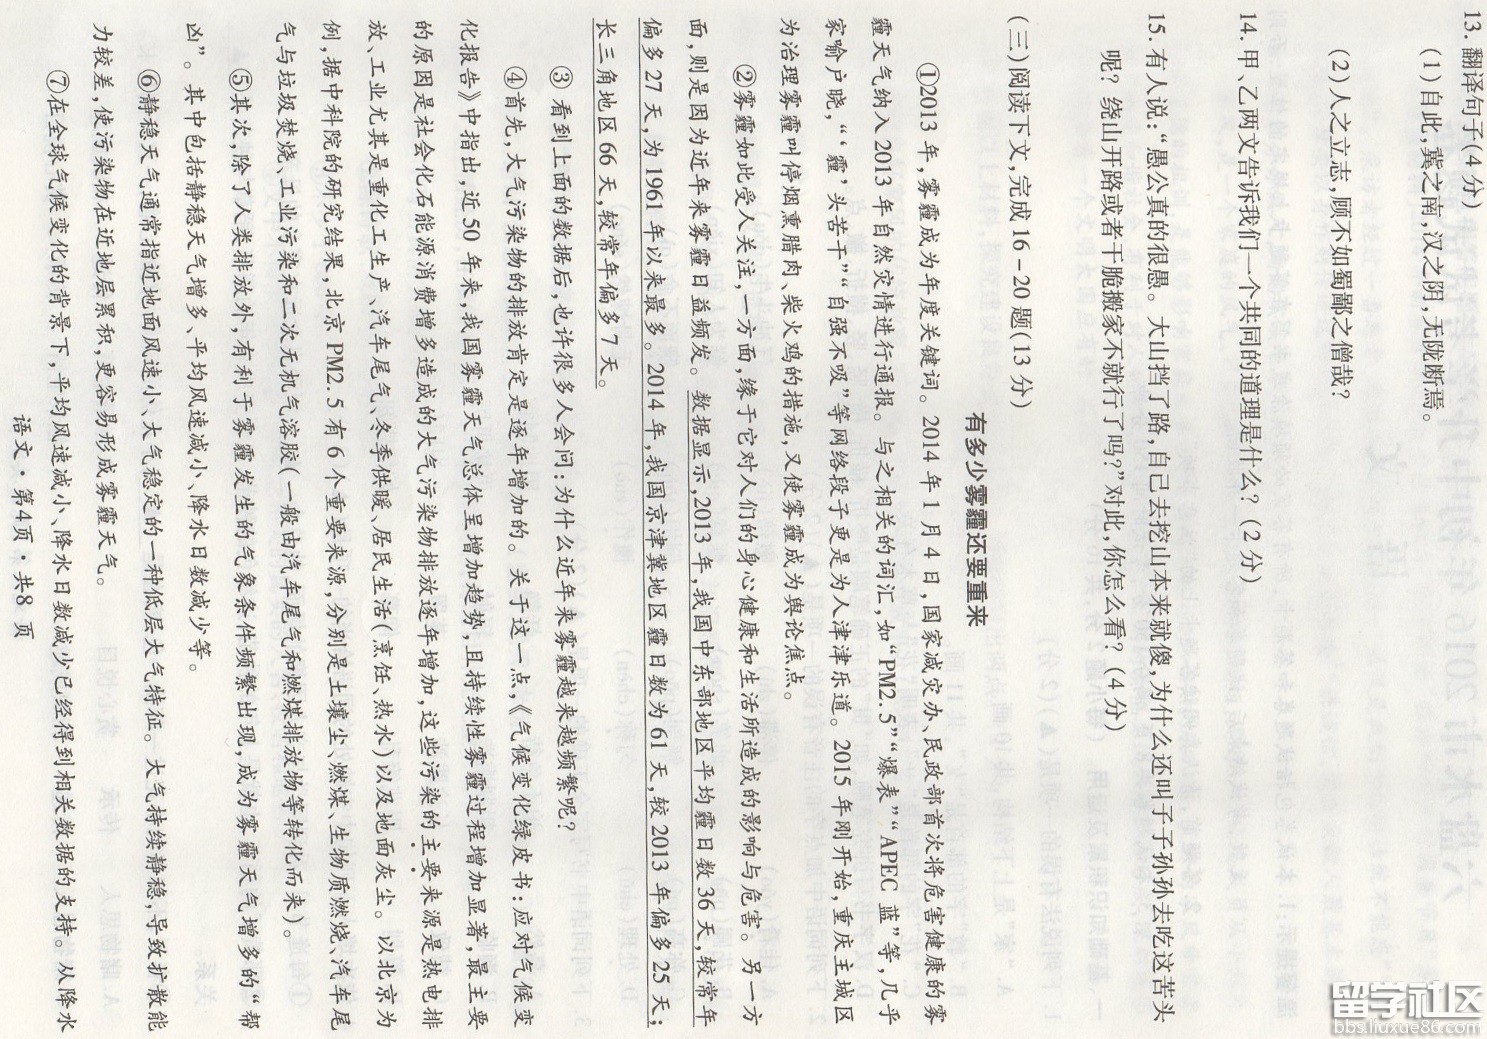 13. 翻译句子(4分)
(1)自此,冀之南,汉之阴,无陇断焉。
(2)人之立志,顾不如蜀鄙之僧哉?
14. 甲、乙两文告诉我们一个共同的道理是什么?(2分)
15. 有人说:“愚公真的很愚。大山挡了路,自己去挖山本来就傻,为什么还叫子子孙孙去吃这苦头
呢?绕山开路或者干脆搬家不就行了吗?”对此,你怎么看?(4分)
(三)阅读下文,完成16-20题(13分)
有多少雾霾还要重来
①2013年,雾霾成为年度关键词。2014年1月4日,国家减灾办、民政部首次将危害健康的雾
霾天气纳入2013年自然灾情进行通报。与之相关的词汇,如“PM2.5”“爆表”“APEC蓝”等,几乎
家喻户晓,“‘霾’头苦干”“自强不吸”等网络段子更是为人津津乐道。2015年刚开始,重庆主城区
为治理雾霾叫停烟熏腊肉、柴火鸡的措施,又使雾霾成为舆论焦点。
②雾霾如此受人关注,一方面,缘于它对人们的身心健康和生活所造成的影响与危害。另一方
面,则是因为近年来雾霾日益频发。数据显示,2013年,我国中东部地区平均霾日数36天,较常年
偏多27天,为1961年以来最多。2014年,我国京津冀地区霾日数为61天,较2013年偏多25天;
长三角地区66天,较常年偏多7天。
③看到上面的数据后,也许很多人会问:为什么近年来雾霾越来越频繁呢?
④首先,大气污染物的排放肯定是逐年增加的。关于这一点,《气候变化绿皮书:应对气候变
化报告》中指出,近50年来,我国雾霾天气总体呈增加趋势,且持续性雾霾过程增加显著,最主要
的原因是社会化石能源消费增多造成的大气污染物排放逐年增加,这些污染的主要来源是热电排
放、工业尤其是重化工生产、汽车尾气、冬季供暖、居民生活(烹饪、热水)以及地面灰尘。以北京为
例,据中科院的研究结果,北京PM2.5有6个重要来源,分别是土壤尘、燃煤、生物质燃烧、汽车尾
气与垃圾焚烧、工业污染和二次无机气溶胶(一般由汽车尾气和燃煤排放物等转化而来)。
⑤其次,除了人类排放外,有利于雾霾发生的气象条件频繁出现,成为雾霾天气增多的“帮
凶”。其中包括静稳天气增多、平均风速减小、降水日数减少等。
⑥静稳天气通常指近地面风速小、大气稳定的一种低层大气特征。大气持续静稳,导致扩散能
力较差,使污染物在近地层累积,更容易形成雾霾天气。
⑦在全球气候变化的背景下,平均风速减小、降水日数减少已经得到相关数据的支持。从降水
语文·第4页·共8页
留学社区
bbs.liuxue86.com